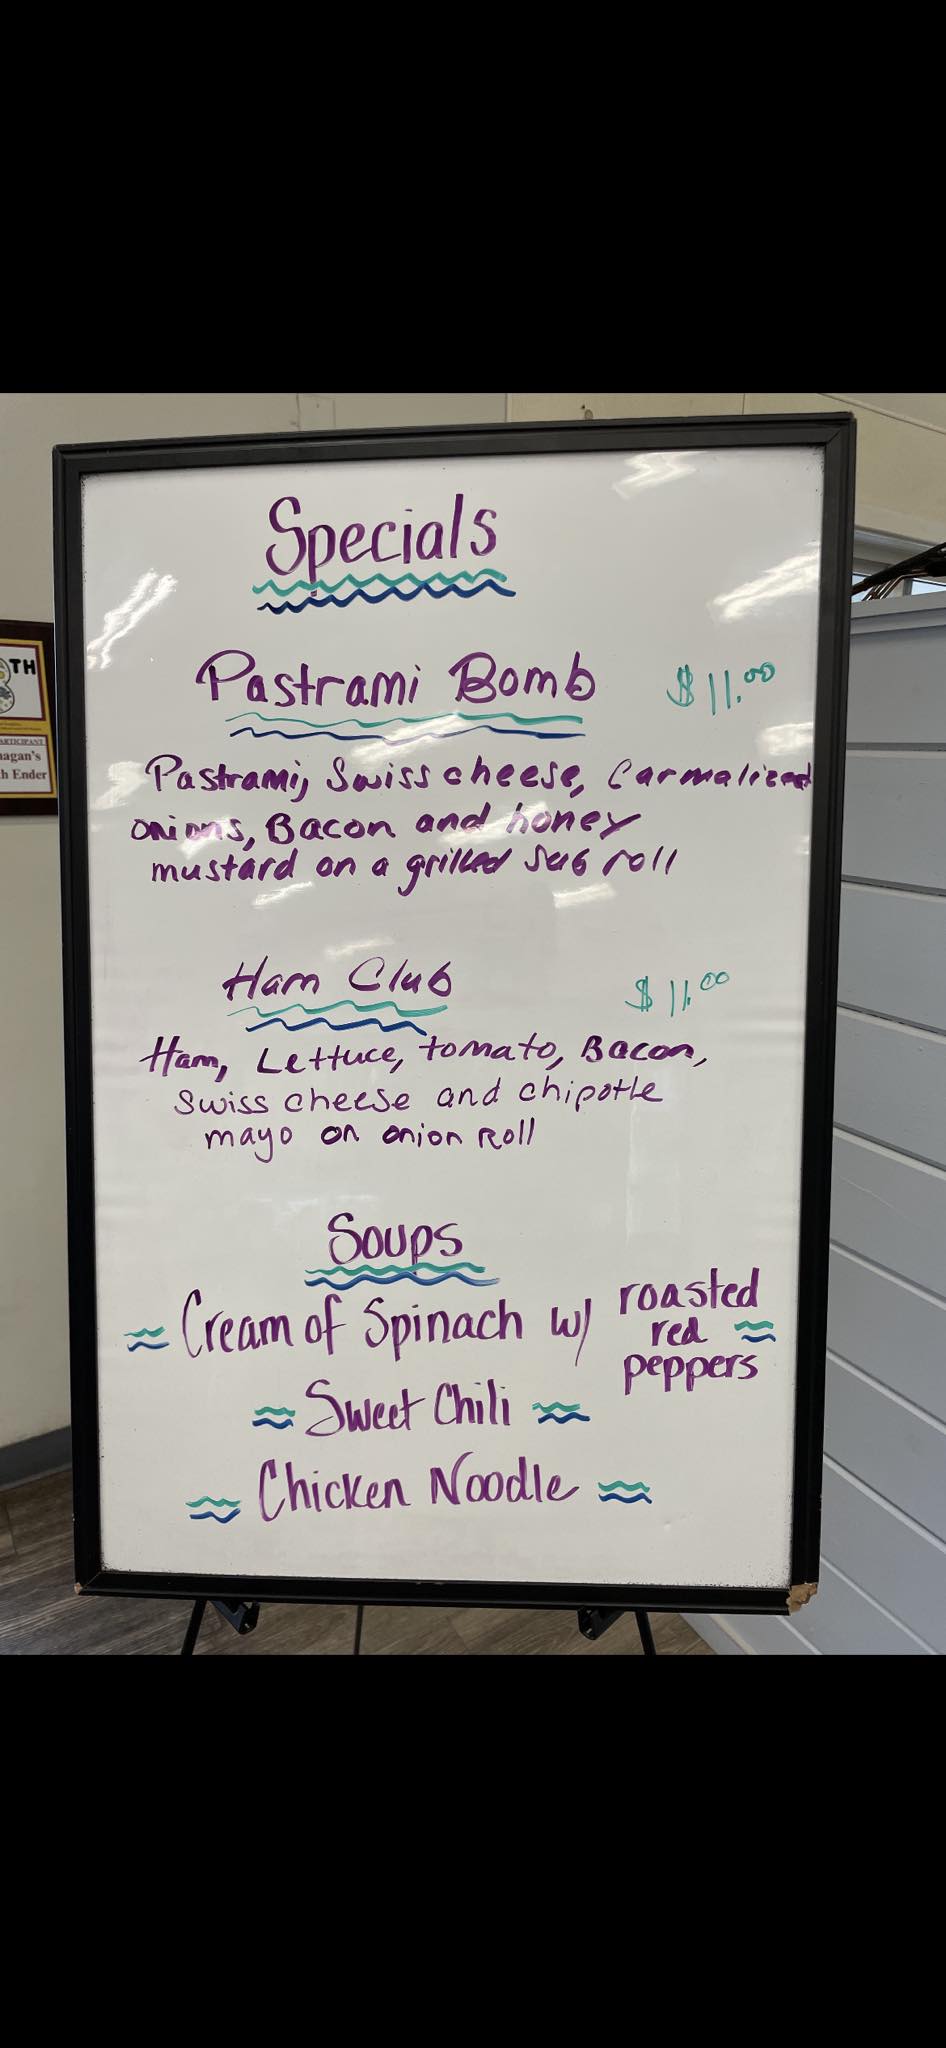 Specials
Pastrami Bomb $11.00
Pastrami, Swiss cheese, Carmalized
onions, Bacon and honey
mustard on a grilled sub roll
Ham Club $11.00
Ham, Lettuce, tomato, Bacon,
Swiss cheese and chipotle
mayo on onion Roll
Soups
Cream of Spinach w/ roasted
red
peppers
Sweet Chili
Chicken Noodle
TH
ARTICIPANT
nagan's
h Ender